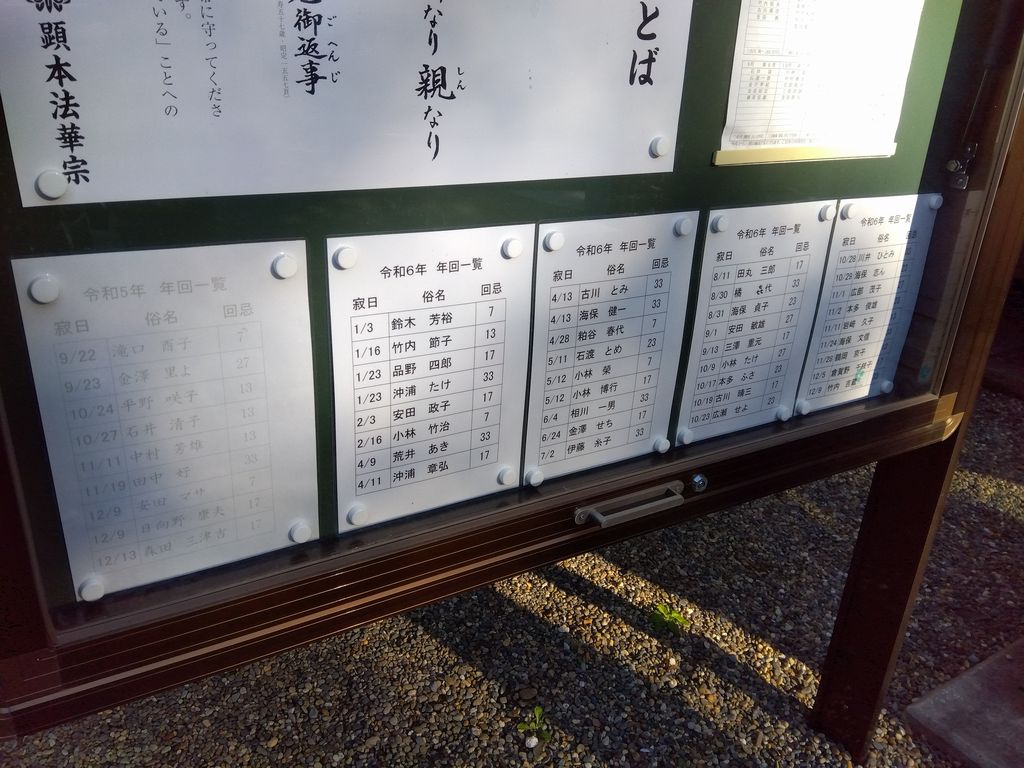 とば
なり親なり
しん
御返事
ごへんじ
常に守ってくださ
す。
いる」ことへの
顕本法華宗
令和5年 年回一覧
寂日 俗名 回忌
9/22 滝口 酉子 7
9/23 金澤 里よ 27
10/24 平野 咲子 13
10/27 石井 清子 13
11/11 中村 芳雄 13
11/19 田中 好 33
12/9 安田 マサ 7
12/9 日向野 康夫 17
12/13 森田 三津吉 17
令和6年 年回一覧
寂日 俗名 回忌
1/3 鈴木 芳裕 7
1/16 竹内 節子 13
1/23 品野 四郎 17
1/23 沖浦 たけ 33
2/3 安田 政子 17
2/16 小林 竹治 7
4/9 荒井 あき 33
4/11 沖浦 章弘 17
令和6年 年回一覧
寂日 俗名 回忌
4/13 古川 とみ 33
4/13 海保 健一 33
4/28 粕谷 春代 7
5/11 石渡 とめ 23
5/12 小林 榮 7
5/12 小林 博行 17
6/4 相川 一男 33
6/24 金澤 せち 17
7/2 伊藤 糸子 33
令和6年 年回一覧
寂日 俗名 回忌
8/11 田丸 三郎 17
8/30 橘 代 33
8/31 海保 貞子 23
9/1 安田 敏雄 27
9/13 三澤 重元 17
10/9 小林 たけ 27
10/17 本多 ふさ 23
10/19 古川 晴三 17
10/23 広瀬 せよ 23
令和6年 年回一覧
寂日 俗名
10/28 川井 ひとみ
10/28 海保 志ん
11/1 広部 茂子
11/2 本多 俊雄
11/11 岩崎 久子
11/24 海保 文信
11/29 鶴岡 京子
12/5 倉賀野
12/9 竹内